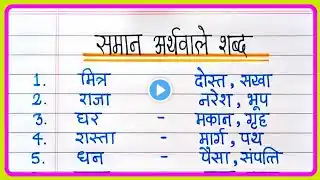 समान अर्थवाले शब्द
1. मित्र दोस्त, सखा
2. राजा नरेश, भूप
3. घर - मकान, गृह
4. रास्ता - मार्ग, पथ
5. धन - पैसा, संपत्ति